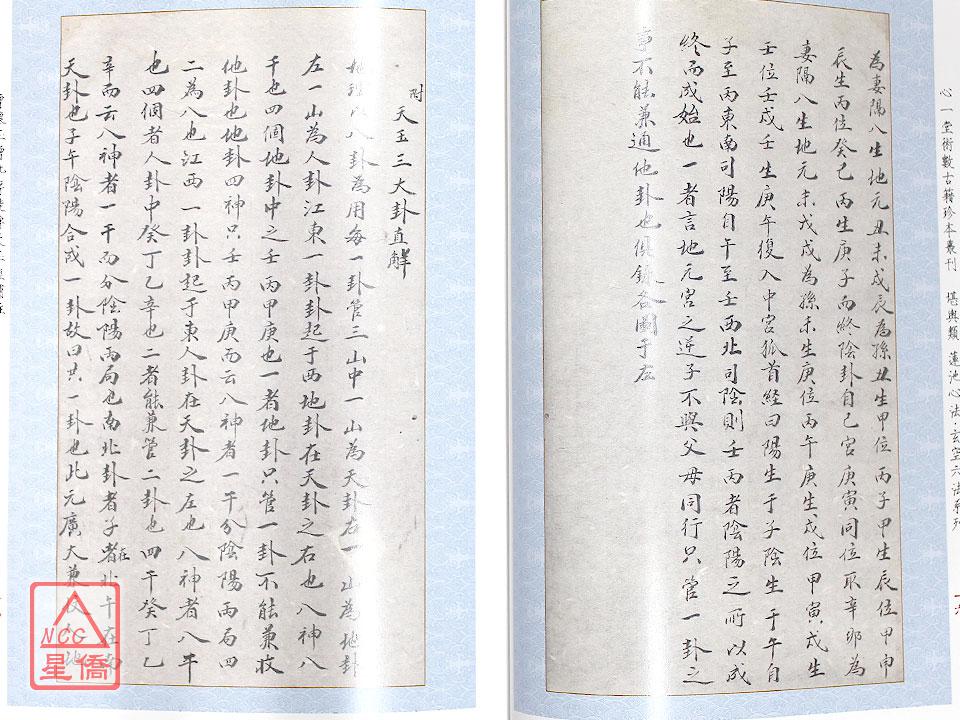 心一堂術數古籍珍本叢刊　堪輿類　蓮池心法·玄空六法系列
為妻隔八生地元丑未戌辰為孫丑生甲位丙子甲生辰位甲申
辰生丙位癸已丙生庚子而終陰卦自已宮庚寅同位取辛卯為
妻隔八生地元未戊戌為孫未生庚位丙午庚生戌位甲寅戌生
壬位壬戌壬生庚午復入中宮狐首經曰陽生于子陰生于午自
子至丙東南司陽自午至壬西北司陰則壬丙者陰陽之所以成
終而成始也一者言地元宮之逆子不與父母同行只管一卦之
事不能兼通他卦也俱錄各圖于左
附　天玉三大卦直解
地理以八卦為用每一卦管三山中一山為天卦右一山為地卦
左一山為人卦江東一卦卦起于西地卦在天卦之右也八神八
干也四個地卦中之壬丙甲庚也一者地卦只管一卦不能兼收
他卦也地卦四神只壬丙甲庚而云八神者一干分陰陽兩局四
二為八也江西一卦卦起于東人卦在天卦之左也八神者八干
也四個者人卦中癸丁乙辛也二者能兼管二卦也四干癸丁乙
辛而云八神者一干而分陰陽兩局也南北卦者子者在北午在南
天卦也子午陰陽合成一卦故曰共一卦也此元廣大兼收地
NCG
星僑